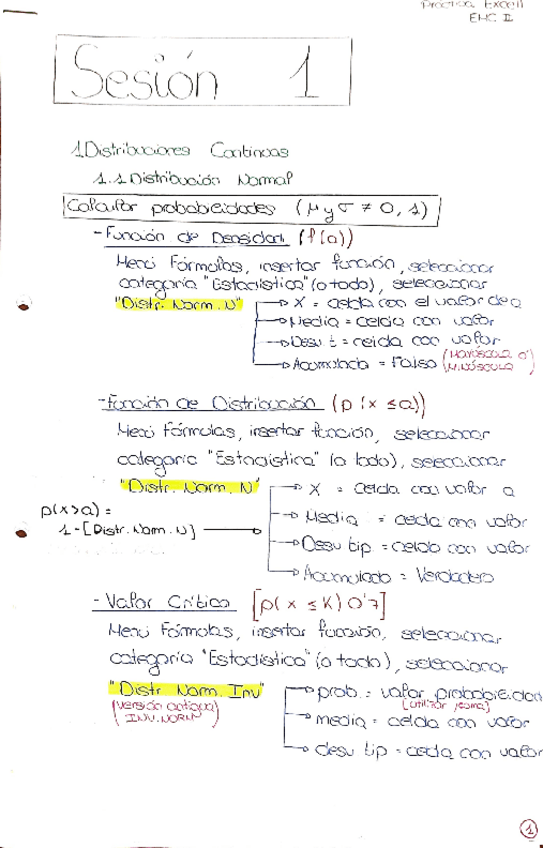 Práctica Excel
EHC II
Sesión 1
1. Distribuciones Continuas
1.1 Distribución Normal
Calcular probabilidades (μ y σ ≠ 0, 1)
- Función de Densidad (f(a))
Menú Fórmulas, insertar función, seleccionar
categoría "Estadística" (o todo), seleccionar
"Distr. Norm. N" → X = celda con el valor de a
→ Media = celda con valor
→ Desv t = celda con valor
→ Acumulada = Falso (Mayúscula o
Minúscula)
- Función de Distribución (p(x ≤ a))
Menú Fórmulas, insertar función, seleccionar
categoría "Estadística" (o todo), seleccionar
"Distr. Norm. N" → X = celda con valor a
p(x>a) =
1-[Distr. Nom. N] → Media = celda con valor
→ Desv tip = celda con valor
→ Acumulado = Verdadero
- Valor Crítico [p(x ≤ K) 0'7]
Menú Fórmulas, insertar función, seleccionar
categoría "Estadística" (o todo), seleccionar
"Distr. Norm. Inv" → prob. = valor probabilidad
(versión antigua) (utilizar coma)
INV. NORM → media = celda con valor
→ desv tip = celda con valor
1